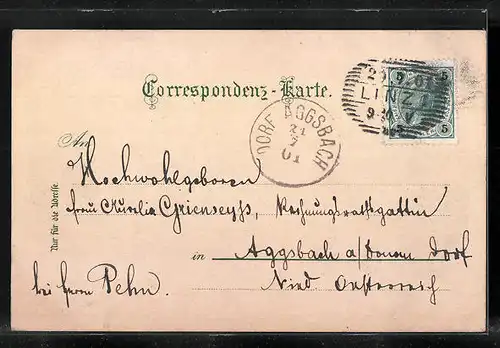 Correspondenz-Karte.
5 5
LINZ
5 5
DORF AGGSBACH
21
7
01
An
Hochwohlgeboren
Frau Aurelia Grienseyss, Rechnungsrathsgattin
in Aggsbach a/Donau Dorf
bei Herrn Pehn. Nied. Oesterreich
Nur für die Adresse.